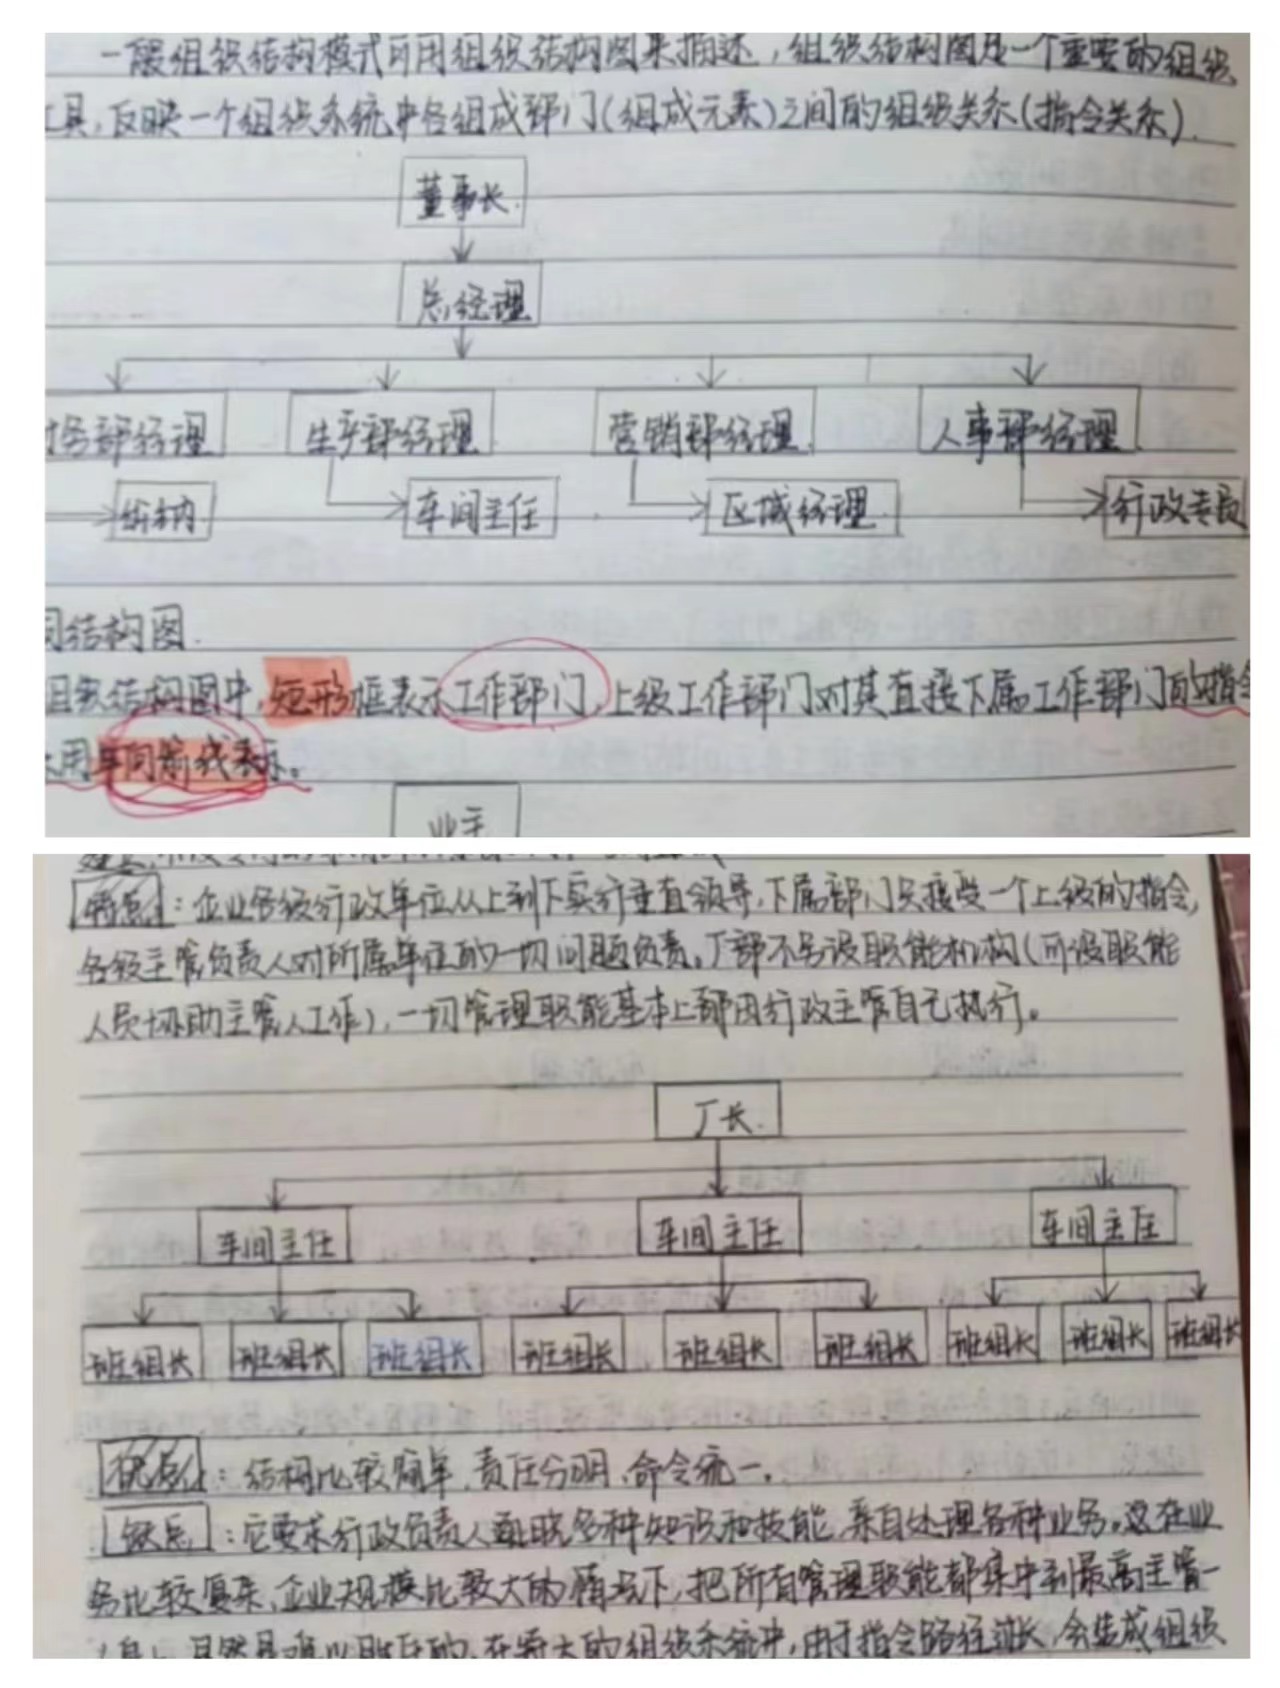 一般组织结构模式可用组织结构图来描述，组织结构图是一个重要的组织
工具，反映一个组织系统中各组成部门(组成元素)之间的组织关系(指令关系).
董事长.
总经理
财务部经理 生产部经理 营销部经理. 人事部经理.
出纳 车间主任 区域经理 行政专员
司结构图.
组织结构图中,矩形框表示工作部门,上级工作部门对其直接下属工作部门的指令
用单向箭线表示。
业主
特点：企业各级行政单位从上到下实行垂直领导,下属部门只接受一个上级的指令,
各级主管负责人对所属单位的一切问题负责。厂部不另设职能机构(可设职能
人员协助主管人工作),一切管理职能基本上都由行政主管自己执行。
厂长.
车间主任 车间主任 车间主任
班组长 班组长 班组长 班组长 班组长 班组长 班组长 班组长 班组长
优点：结构比较简单,责任分明,命令统一。
缺点：它要求行政负责人通晓多种知识和技能,亲自处理各种业务。这在业
务比较复杂、企业规模比较大的情况下,把所有管理职能都集中到最高主管一
人身上,显然是难以胜任的.在特大的组织系统中,由于指令路径过长,会造成组织